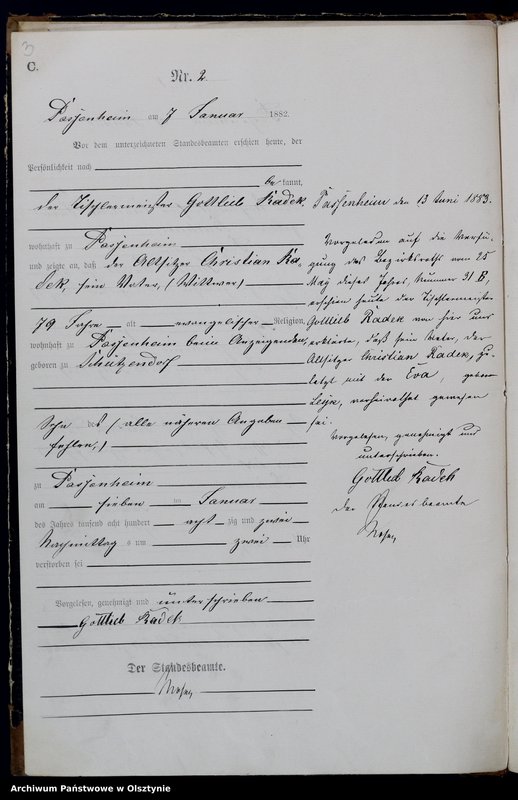 3
C.
Nr. 2
Passenheim am 7 Januar 1882.
Vor dem unterzeichneten Standesbeamten erschien heute, der
Persönlichkeit nach
bekannt,
der Tischlermeister Gottlieb Kadek
wohnhaft zu Passenheim
und zeigte an, daß der Altsitzer Christian Ka-
dek, sein Vater, (Wittwer)
79 Jahre alt evangelischer Religion,
wohnhaft zu Passenheim beim Anzeigenden,
geboren zu Schützendorf
Sohn des (alle näheren Angaben
fehlen,)
zu Passenheim
am sieben ten Januar
des Jahres tausend acht hundert acht zig und zwei
Nachmittag s um zwei Uhr
verstorben sei
Vorgelesen, genehmigt und unterschrieben
Gottlieb Kadek
Der Standesbeamte.
Passenheim den 13 Juni 1883.
Vorgeladen auf die Verfü-
gung des Bezirksraths vom 25
May dieses Jahres, Nummer 31 B,
erschien heute der Tischlermeister
Gottlieb Kadek von hier und
erklärte, daß sein Vater, der
Altsitzer Christian Kadek, zu-
letzt mit der Eva, geborn
verheirathet gewesen
sei.
Vorgelesen, genehmigt und
unterschrieben.
Gottlieb Kadek
Der Standesbeamte
Archiwum Państwowe w Olsztynie